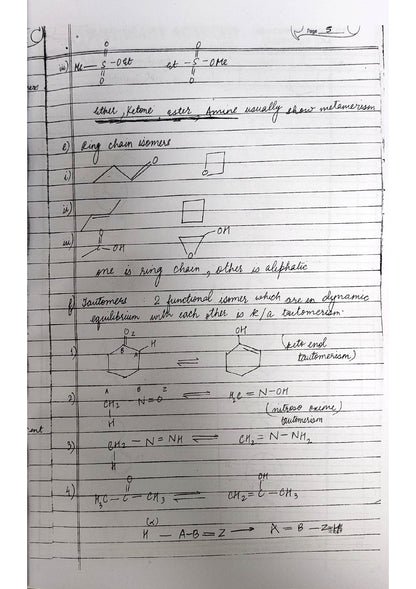 Page 5
iii) Me — S — OEt    Et — S — OMe
O O O O
Ether, Ketone, ester, Amine usually show metamerism
e) Ring chain isomers
i) O O
ii)
iii) O OH OH O
one is ring chain, other is aliphatic
f) Tautomers : 2 functional isomer which are in dynamic
equilibrium with each other is k/a tautomerism.
1) O Z B A H ⇌ OH (keto enol
tautomerism)
A B Z
2) CH₂ N = O ⇌ H₂C = N – OH
H (nitroso oxime)
tautomerism
3) CH₂ – N = NH ⇌ CH₂ = N – NH₂
H
O OH
4) H₃C – C – CH₃ ⇌ CH₂ = C – CH₃
(α)
H — A–B = Z → A = B – Z–H